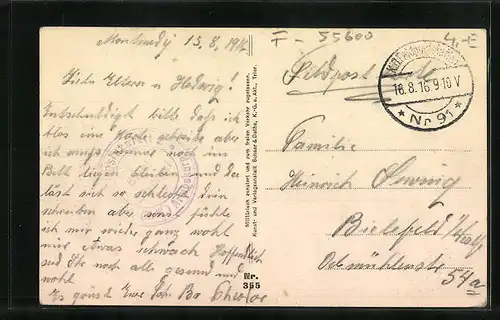 Montmedy 15.8.1916
Liebe Eltern u Hedwig!
Entschuldigt bitte daß ich
blos eine Karte schreibe aber
ich muß immer noch im
Bett liegen bleiben und da
läst sich so schlecht drin
schreiben aber sonst fühle
ich mir wieder ganz wohl
nur etwas schwach Hoffentlich
seid Ihr noch alle gesund und
wohl
Es grüsst Euer Sohn Br Theodor
Militärisch zensiert und zum freien Verkehr zugelassen.
Kunst- und Verlagsanstalt Schaar & Dathe, K.-G. a. Akt., Trier.
Nr.
355
F - 55600
Feldpost
16.8.16 9-10 V
Nr 91
Familie
Heinrich
Bielefeld i/Westf
Oelmühlenstr
54a